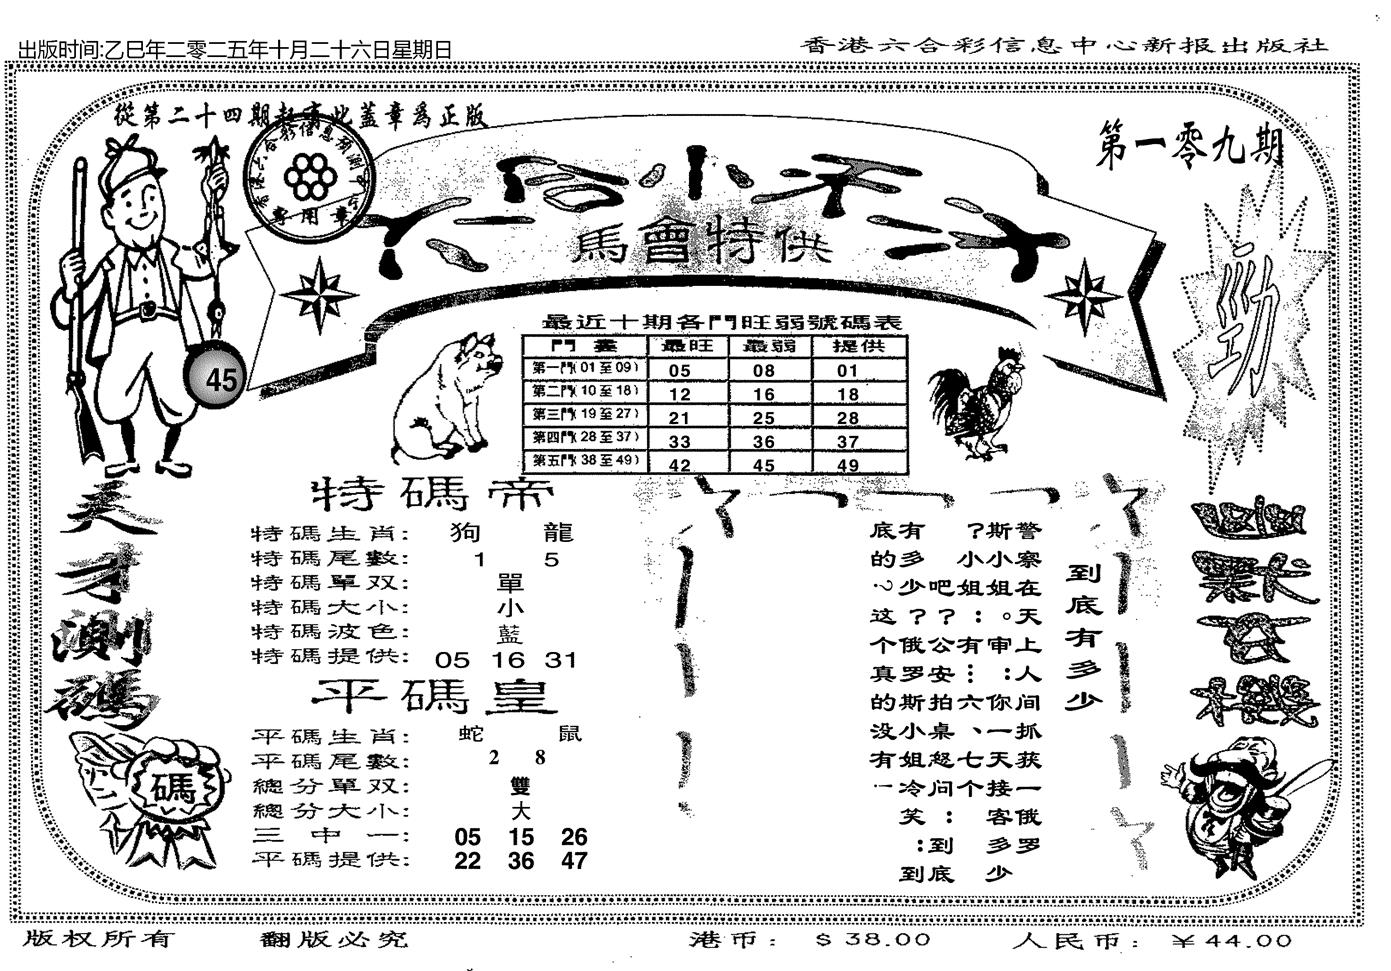 出版时间:乙巳年二零二五年十月二十六日星期日
香港六合彩信息中心新报出版社
從第二十四期起有此蓋章為正版
第一零九期
香港六合彩信息預測中心
專用章
六合小天才
馬會特供
勁
45
最近十期各門旺弱號碼表
門 最旺 最弱 提供
第一門(01至09) 05 08 01
第二門(10至18) 12 16 18
第三門(19至27) 21 25 28
第四門(28至37) 33 36 37
第五門(38至49) 42 45 49
天才測碼
碼
特碼帝
特碼生肖: 狗 龍
特碼尾數: 1 5
特碼單双: 單
特碼大小: 小
特碼波色: 藍
特碼提供: 05 16 31
平碼皇
平碼生肖: 蛇 鼠
平碼尾數: 2 8
總分單双: 雙
總分大小: 大
三中一: 05 15 26
平碼提供: 22 36 47
到底有多少
警察在天上人间抓获一俄罗
斯小姐。审 你一天接客多少
?小姐:有:六、七个
:公安拍桌怒问:到底
有多少?俄罗斯小姐冷笑:到底
底的?这个真的没有
版权所有
翻版必究
港币: $38.00
人民币: ¥44.00